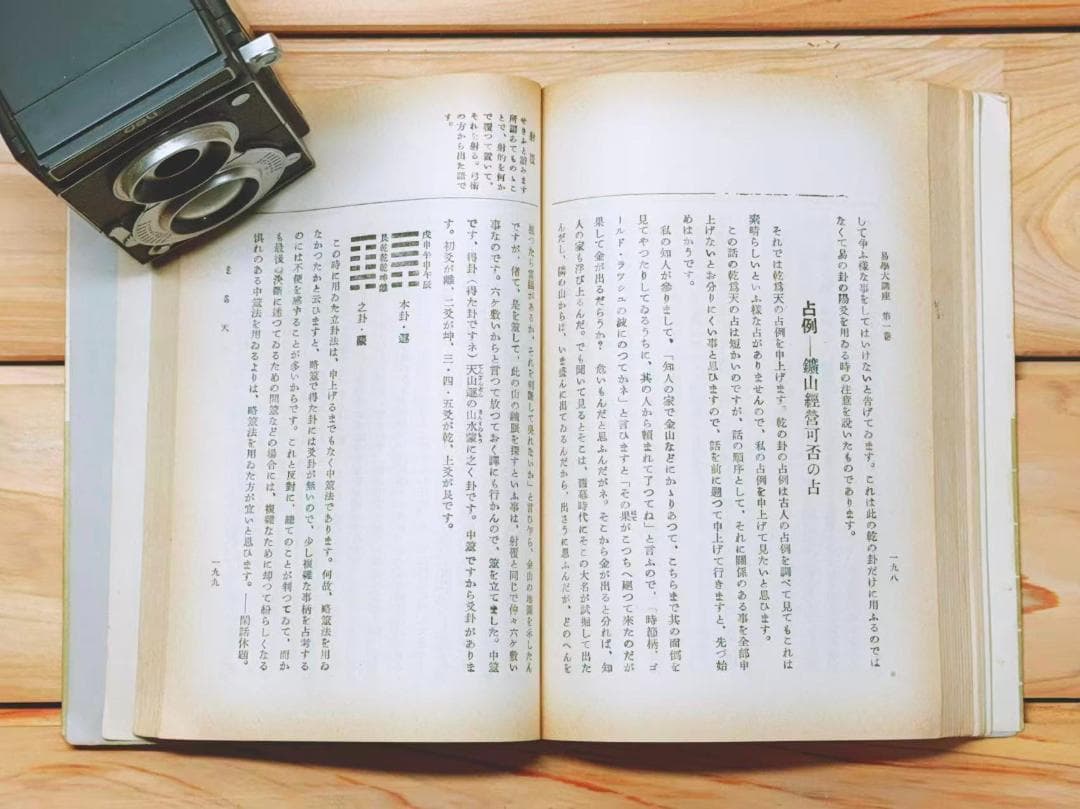 易學大講座 第一卷
一九八
して爭ふ樣な事をしてはいけないと告げてゐます。これは此の乾の卦だけに用ふるのでは
なくて易の卦の陽爻を用ゐる時の注意を說いたものであります。
占例―鑛山經營可否の占
それでは乾爲天の占例を申上げます。乾の卦の占例は古人の占例を調べて見てもこれは
素晴らしいといふ樣な占がありませんので、私の占例を申上げて見たいと思ひます。
この話の乾爲天の占は短かいのですが、話の順序として、それに關係のある事を全部申
上げないとお分りにくい事と思ひますので、話を前に遡つて申上げて行きますと、先づ始
めはかうです。
私の知人が參りまして、「知人の家で金山などにかゝりあつて、こちらまで其の面倒を
見てやつたりしてゐるうちに、其の人から賴まれて了つてね」と言ふので、「時節柄、ゴ
ールド・ラッシュの波にのつてかネ」と言ひますと「その果がこつちへ廻つて來たのだが
果して金が出るだらうか?危いもんだと思ふんだがネ。そこから金が出ると分れば、知
人の家も浮び上るんだ。でも聞いて見るとそこは、舊幕時代にその大名が試掘して出た
んだし、隣の山からは、いま盛んに出てゐるんだから、出さうに思ふんだが、どのへんを
射覆
せきふと讀みます
所謂あてものゝこ
とで、射的を何か
で覆つて置いて、
それを射る。弓術
の方から出た語で
す。
掘つたら鑛脈があるか、それを判斷して吳れないか」と言ひ乍ら、金山の地圖を示したん
ですが、偖て、是を筮して、此の山の鑛脈を探すといふ事は、射覆と同じで仲々六ケ敷い
事なのです。六ケ敷いからと言つて放つておく譯にも行かんので、筮を立てました。中筮
です、得卦(得た卦ですネ)天山遯の山水蒙に之く卦です。中筮ですから爻卦がありま
す。初爻が離、二爻が坤、三・四・五爻が乾、上爻が艮です。
戌申午申午辰
本卦・遯
艮乾乾乾坤離
之卦・蒙
この時に用ゐた立卦法は、申上げるまでもなく中筮法であります。何故、略筮法を用ゐ
なかつたかと云ひますと、略筮で得た卦には爻卦が無いので、少し複雜な事柄を占考する
のには不便を感ずることが多いからです。これと反對に、總てのことが判つてゐて、而か
も最後の決斷に迷つてゐるための問筮などの場合には、複雜なために却つて紛らしくなる
惧れのある中筮法を用ゐるよりは、略筮法を用ゐた方が宜いと思ひます。――閑話休題。
乾爲天
一九九